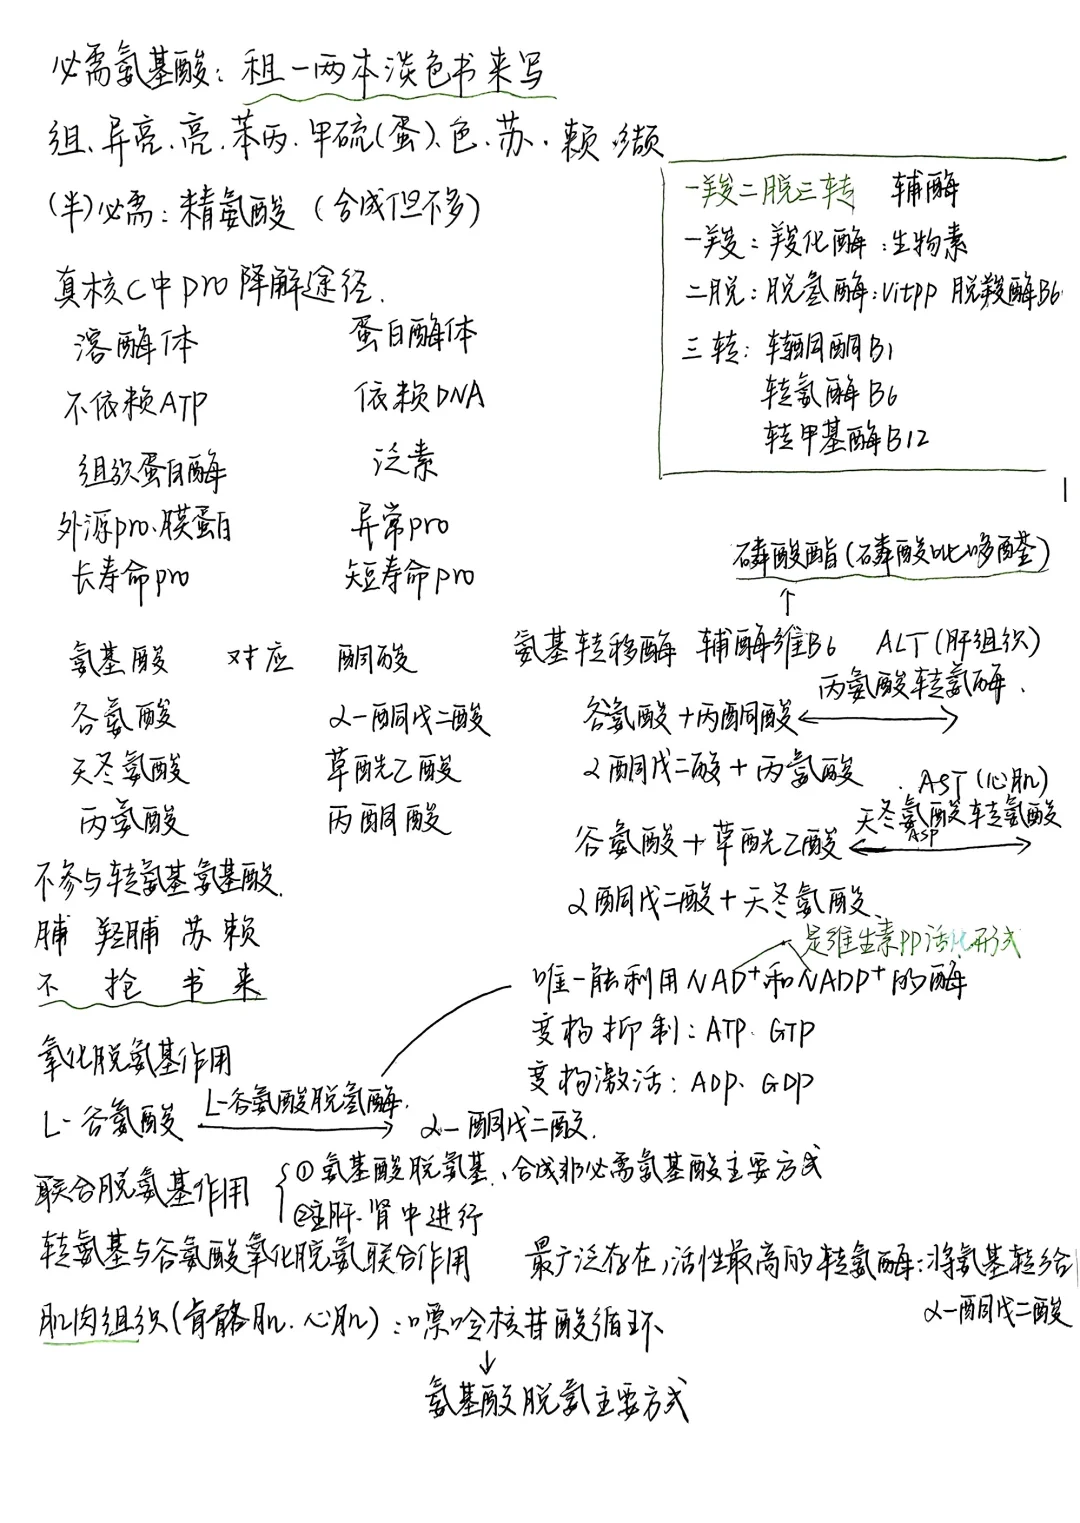 必需氨基酸：租一两本淡色书来写
组、异亮、亮、苯丙、甲硫(蛋)、色、苏、赖、缬
(半)必需：精氨酸（合成但不多）
一羧二脱三转 辅酶
一羧：羧化酶：生物素
二脱：脱氢酶：Vitpp 脱羧酶B6
三转：转酮醇酶B1
转氨酶B6
转甲基酶B12
真核C中pro降解途径.
溶酶体 蛋白酶体
不依赖ATP 依赖DNA
组织蛋白酶 泛素
外源pro、膜蛋白 异常pro
长寿命pro 短寿命pro
氨基酸 对应 酮酸
谷氨酸 α-酮戊二酸
天冬氨酸 草酰乙酸
丙氨酸 丙酮酸
磷酸酯(磷酸吡哆醛)
↑
氨基转移酶 辅酶维B6 ALT(肝组织)
丙氨酸转氨酶.
谷氨酸+丙酮酸⟷
α酮戊二酸+丙氨酸
AST(心肌)
天冬氨酸转氨酸
ASP
谷氨酸+草酰乙酸⟷
α酮戊二酸+天冬氨酸
不参与转氨基氨基酸.
脯 羟脯 苏 赖
不 抢 书 来
是维生素PP活化形式
唯一能利用NAD⁺和NADP⁺的酶
变构抑制：ATP、GTP
变构激活：ADP、GDP
氧化脱氨基作用
L-谷氨酸 L-谷氨酸脱氢酶→ α-酮戊二酸.
联合脱氨基作用 ①氨基酸脱氨基、合成非必需氨基酸主要方式
②主肝、肾中进行
转氨基与谷氨酸氧化脱氨联合作用
最广泛存在,活性最高的转氨酶：将氨基转给
α-酮戊二酸
肌肉组织(骨骼肌、心肌)：嘌呤核苷酸循环
↓
氨基酸脱氨主要方式